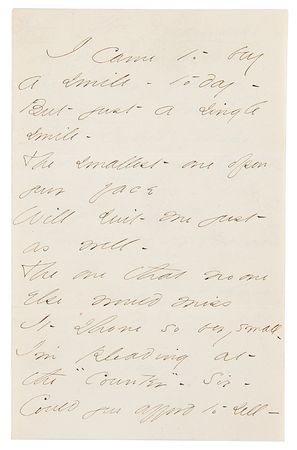 I came to buy
a smile - today -
But just a single
smile -
The smallest one upon
your face
Will suit me just
as well -
The one that no one
else would miss
It shone so very small -
I'm pleading at
the "counter" - Sir -
Could you afford to sell -